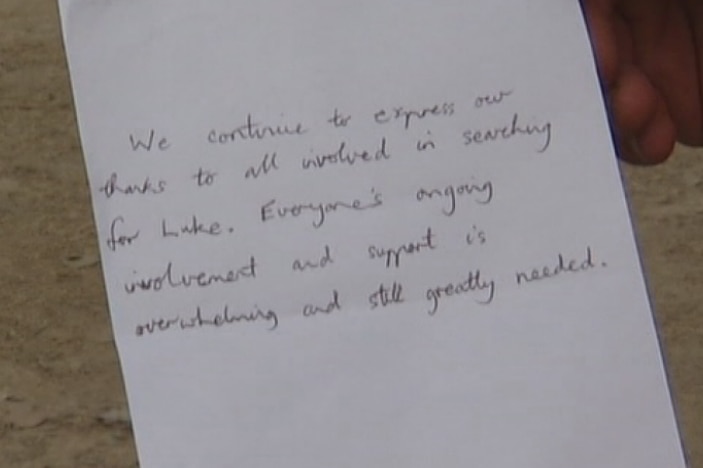 We continue to express our
thanks to all involved in searching
for Luke. Everyone's ongoing
involvement and support is
overwhelming and still greatly needed.